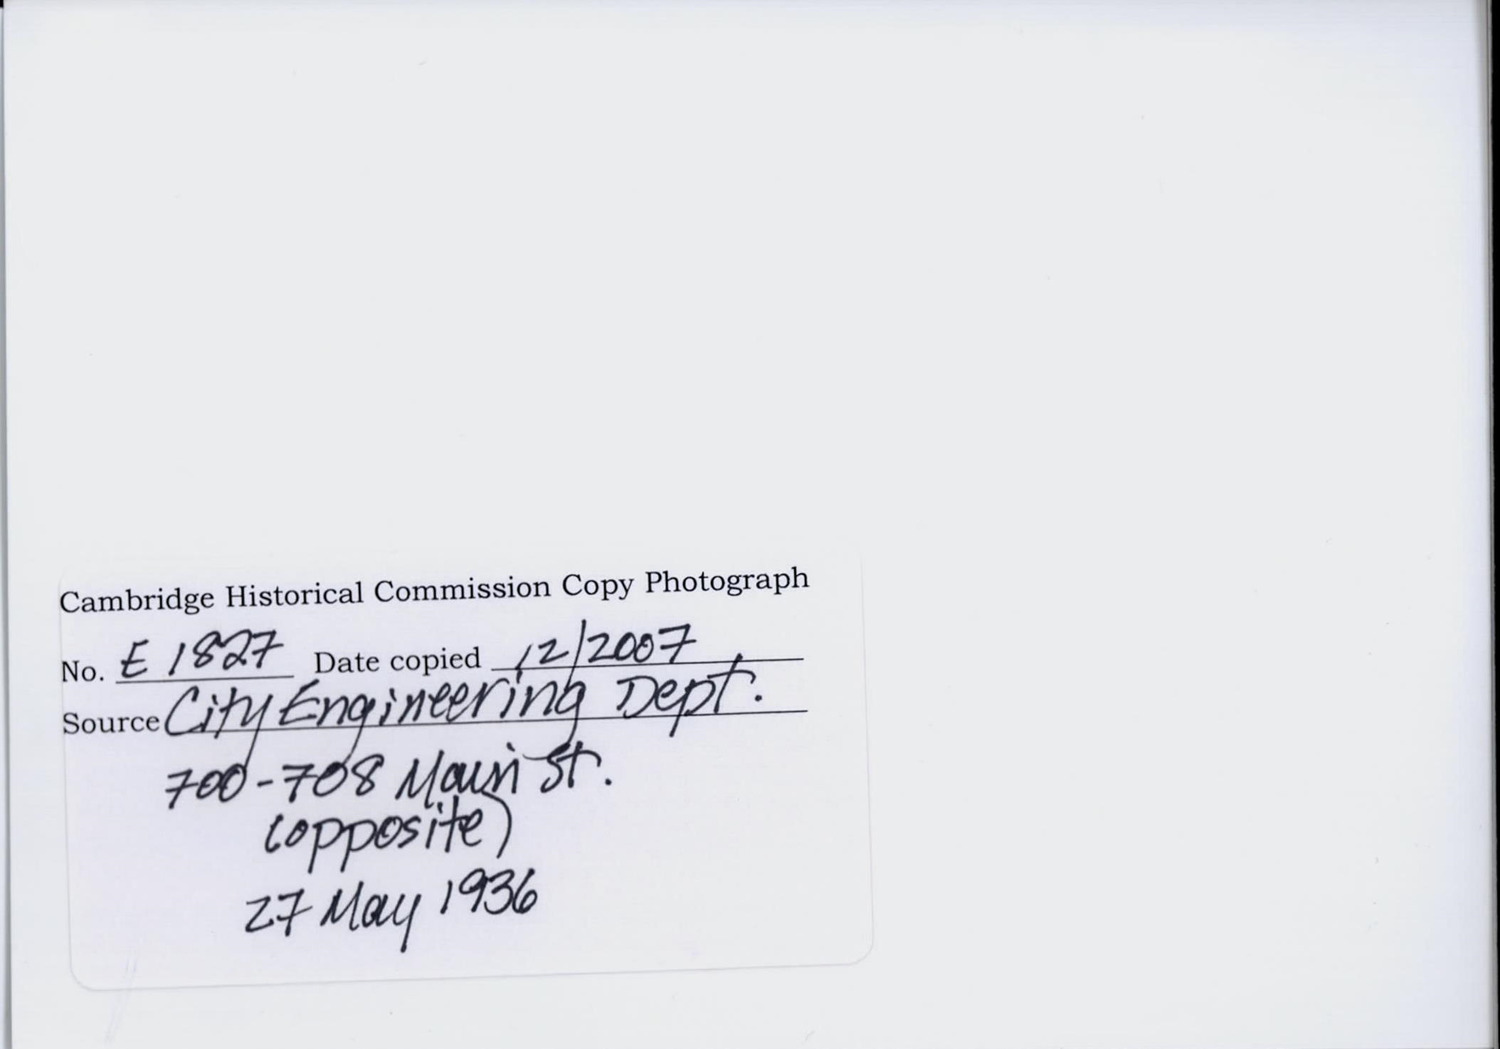 Cambridge Historical Commission Copy Photograph
No. E 1827 Date copied 12/2007
Source City Engineering Dept.
700-708 Main St.
(opposite)
27 May 1936